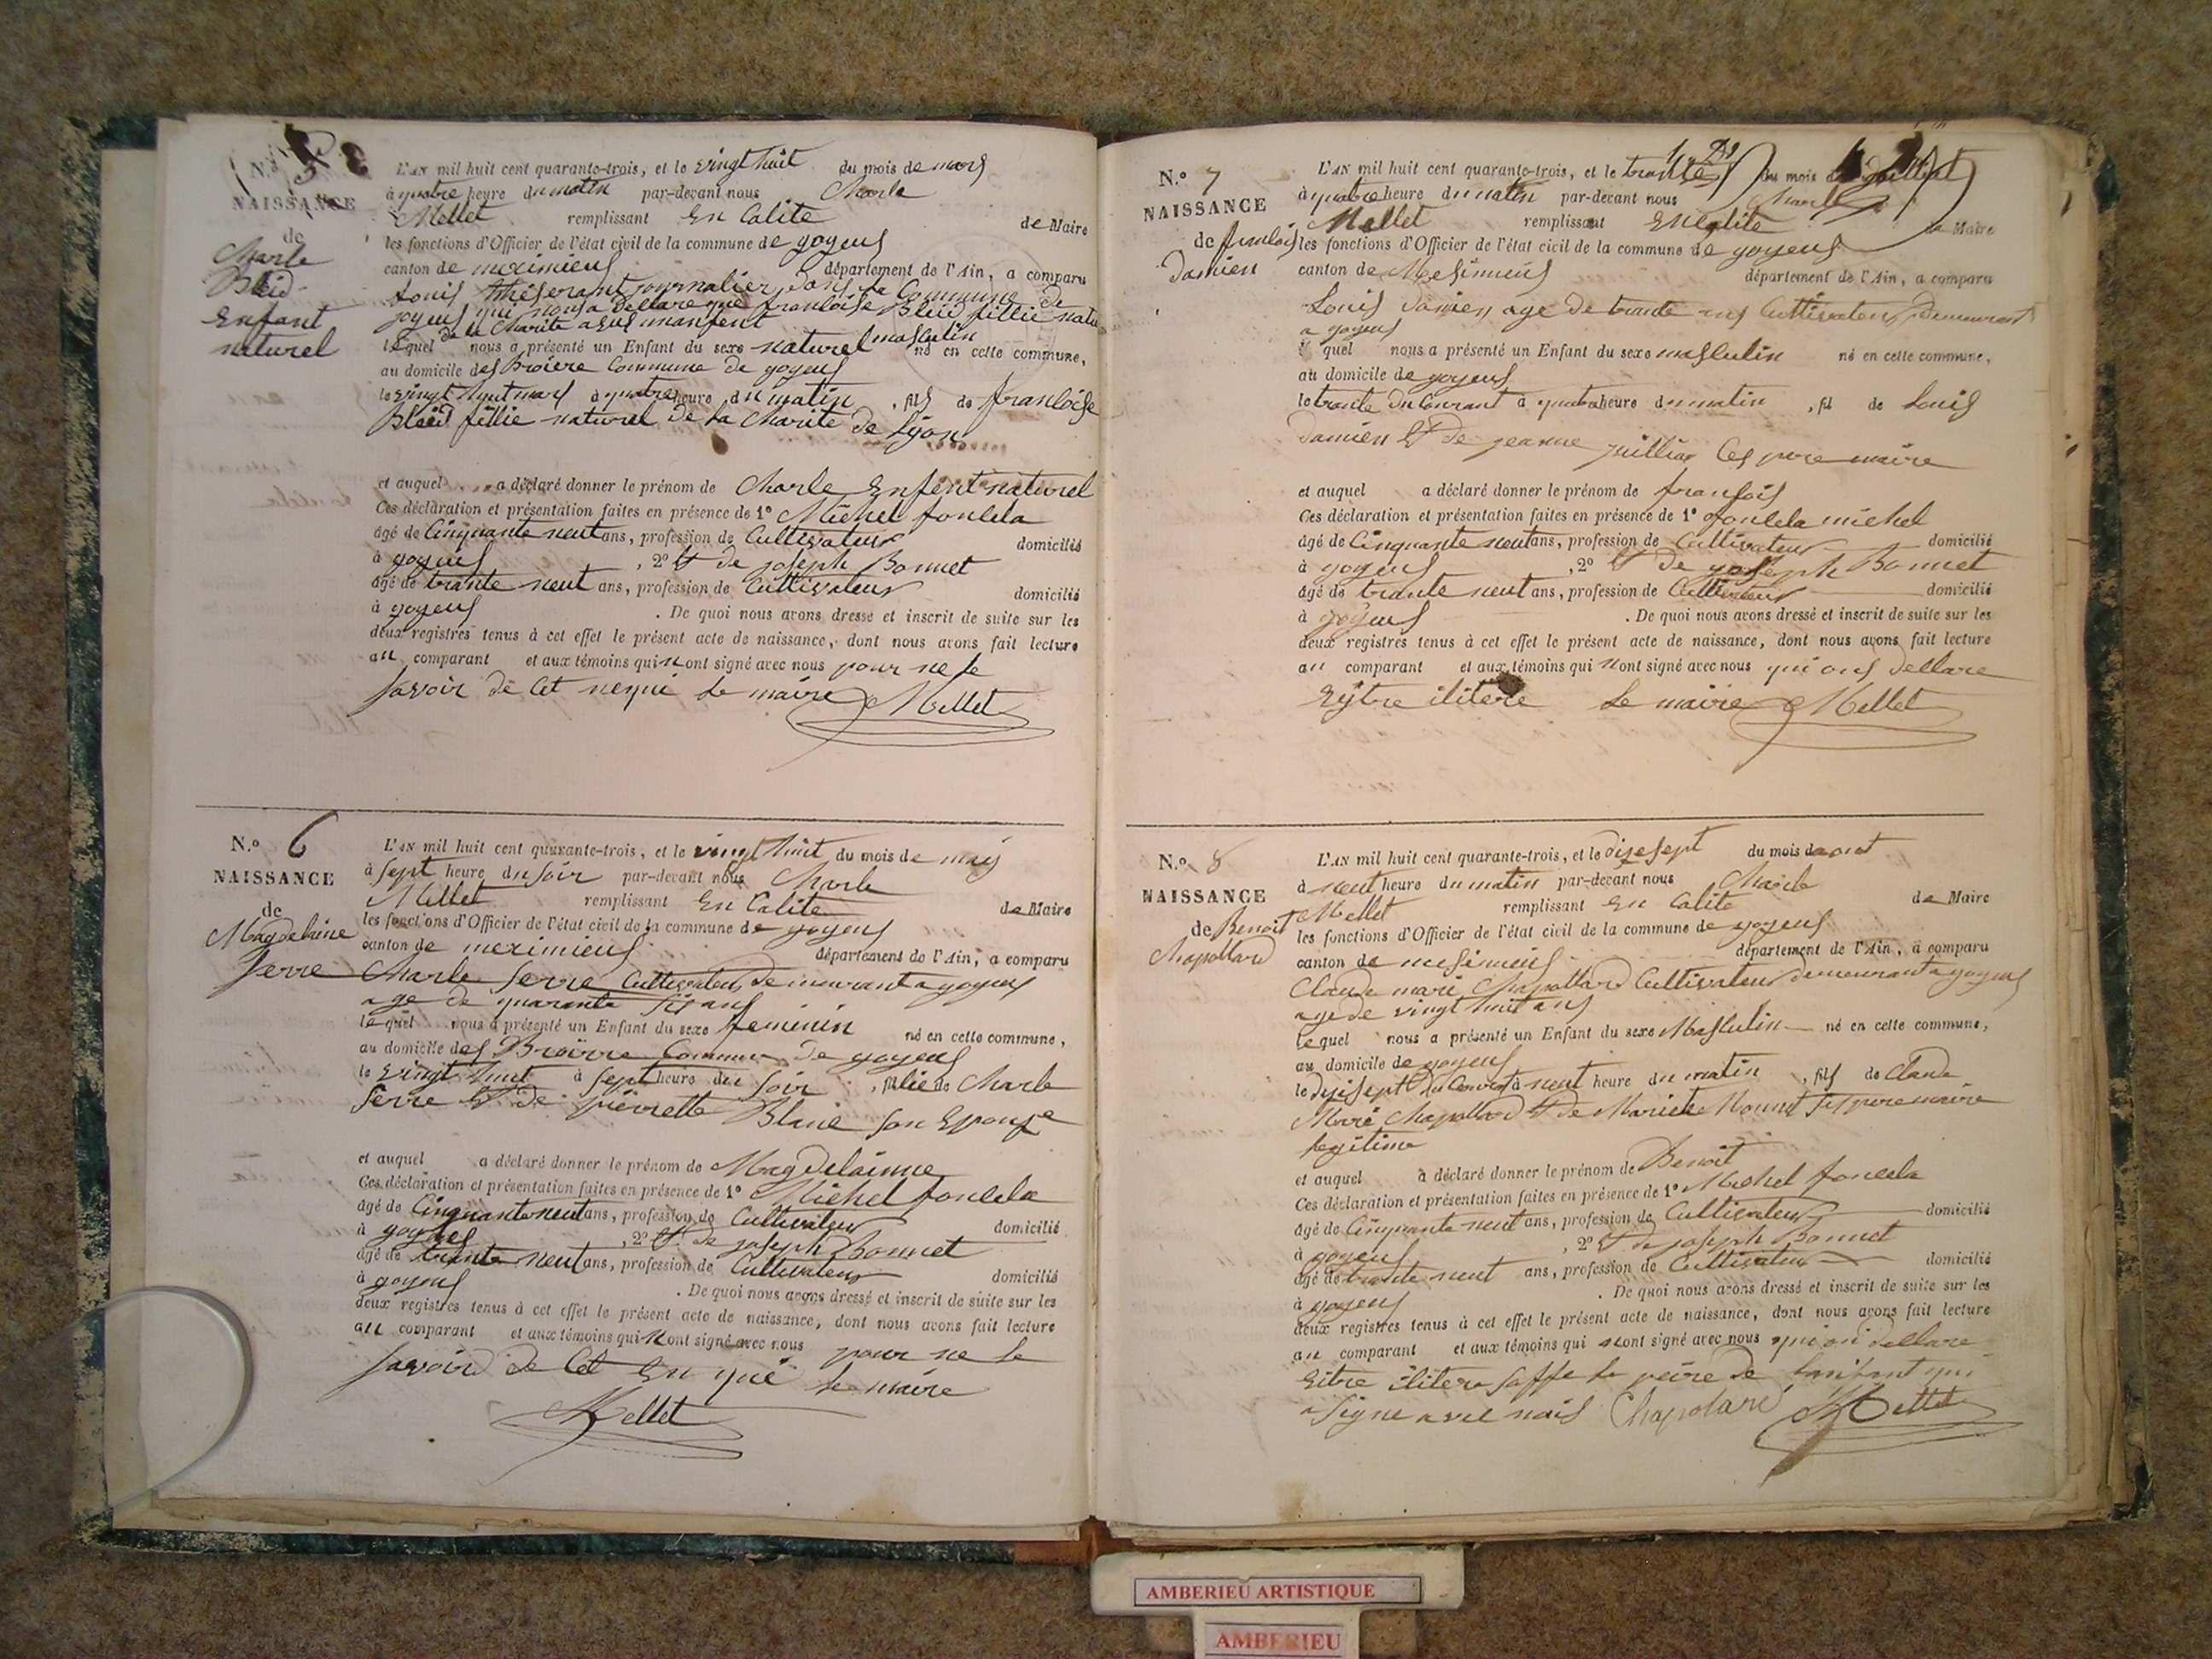 N.º 5
NAISSANCE
de
Charle
Bleid
Enfant
naturel
L'AN mil huit cent quarante-trois, et le vingt huit du mois de mars
à quatre heure du matin par-devant nous Charle
Mellet remplissant En Calite de Maire
les fonctions d'Officier de l'état civil de la commune de joyeus
canton de meximieus département de l'Ain, a comparu
Louis journalier dans la Commune de
joyeus qui nous a declare que franloise Bleid fillie natu
de la Charite
lequel nous a présenté un Enfant du sexe naturel masculin né en cette commune,
au domicile des Broiere Commune de joyeus
le vingt huit mars à quatre heure du matin, fils de franloise
Bleid fillie naturel de la Charite de Lyon
et auquel a déclaré donner le prénom de Charle Enfent naturel
Ces déclaration et présentation faites en présence de 1º Michel fonlela
âgé de Cinquante neuf ans, profession de Cultivateur domicilié
à joyeus, 2º Et de joseph Bonnet
âgé de trante neuf ans, profession de Cultivateur domicilié
à joyeus. De quoi nous avons dressé et inscrit de suite sur les
deux registres tenus à cet effet le présent acte de naissance, dont nous avons fait lecture
au comparant et aux témoins qui nont signé avec nous pour ne le
savoir de Cet requi Le maire Mellet
N.º 6
NAISSANCE
de
Magdelaine
Serre
L'AN mil huit cent quarante-trois, et le vingt huit du mois de mais
à sept heure du soir par-devant nous Charle
Mellet remplissant En Calite de Maire
les fonctions d'Officier de l'état civil de la commune de joyeus
canton de meximieus département de l'Ain, a comparu
Charle Serre Cultivateur demeurant a joyeus
age de quarante sis ans
lequel nous a présenté un Enfant du sexe feminin né en cette commune,
au domicile des Broirre Commun de joyeus
le vingt huit à sept heure du soir, fillie de Charle
Serre Et de pierrette Blanc son Epouse
et auquel a déclaré donner le prénom de Magdelainne
Ces déclaration et présentation faites en présence de 1º Michel fonlela
âgé de Cinquante neuf ans, profession de Cultivateur domicilié
à joyeus, 2º Et de joseph Bonnet
âgé de trante neuf ans, profession de Cultivateur domicilié
à joyeus. De quoi nous avons dressé et inscrit de suite sur les
deux registres tenus à cet effet le présent acte de naissance, dont nous avons fait lecture
au comparant et aux témoins qui nont signé avec nous pour ne le
savoir de Cet En qui le maire
Mellet
N.º 7
NAISSANCE
de franlois
Damien
L'AN mil huit cent quarante-trois, et le trante du mois de juilliet
à quatre heure du matin par-devant nous Charle
Mellet remplissant En Calite de Maire
les fonctions d'Officier de l'état civil de la commune de joyeus
canton de Mesimieus département de l'Ain, a comparu
Louis Damien age de trante ans Cultivateur demeurant
a joyeus
lequel nous a présenté un Enfant du sexe masculin né en cette commune,
au domicile de joyeus
le trante du Courant à quatre heure du matin, fil de Louis
Damien Et de jeanne juillian Ces pere maire
et auquel a déclaré donner le prénom de fransois
Ces déclaration et présentation faites en présence de 1º fonlela michel
âgé de Cinquante neuf ans, profession de Cultivateur domicilié
à joyeus, 2º Et de joseph Bonnet
âgé de trante neuf ans, profession de Cultivateur domicilié
à joyeus. De quoi nous avons dressé et inscrit de suite sur les
deux registres tenus à cet effet le présent acte de naissance, dont nous avons fait lecture
au comparant et aux témoins qui nont signé avec nous qui ons dellare
Eytre ilitere Le maire Mellet
N.º 8
NAISSANCE
de Benoit
Chapollard
L'AN mil huit cent quarante-trois, et le dixesept du mois daout
à neuf heure du matin par-devant nous Charle
Mellet remplissant En Calite de Maire
les fonctions d'Officier de l'état civil de la commune de joyeus
canton de mesimieus département de l'Ain, a comparu
Claude mari Chapollard Cultivateur demeurant a joyeus
age de vingt huit ans
lequel nous a présenté un Enfant du sexe Masculin né en cette commune,
au domicile de joyeus
le disisept du Courant à neuf heure du matin, fils de Claude
Marie Chapollard Et de Mariete Monnet ses pere maire
legitime
et auquel à déclaré donner le prénom de Benoit
Ces déclaration et présentation faites en présence de 1º Michel fonlela
âgé de Cinquante neuf ans, profession de Cultivateur domicilié
à joyeus, 2º Et de joseph Bonnet
âgé de trante neuf ans, profession de Cultivateur domicilié
à joyeus. De quoi nous avons dressé et inscrit de suite sur les
deux registres tenus à cet effet le présent acte de naissance, dont nous avons fait lecture
au comparant et aux témoins qui nont signé avec nous qui on dellare
Eitre ilitere saffe le peire de lanfant qui
a signe avec nous Chapolard Mellet
AMBERIEU ARTISTIQUE
AMBERIEU